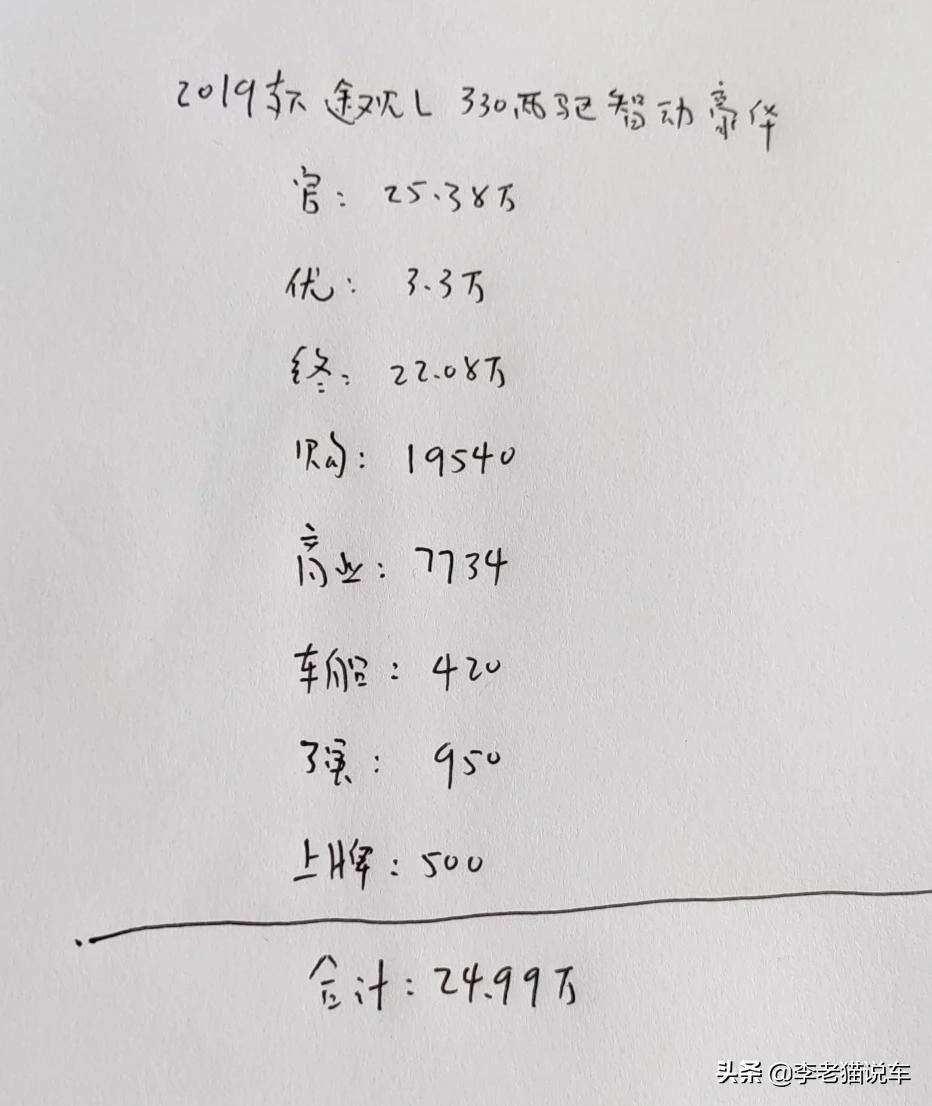 2019款 途观L 330两驱智动豪华
官: 25.38万
优: 3.3万
终: 22.08万
购: 19540
商业: 7734
车船: 420
强: 950
上牌: 500
合计: 24.99万
头条 @李老猫说车